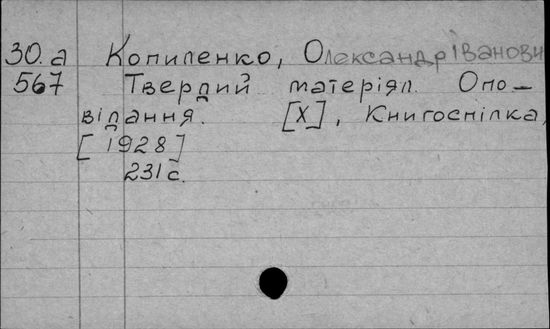 30.а Копиленко, Олександр Іванови
567 Твердий матеріял. Опо-
відання. [Х], Книгоспілка,
[1928]
231 с.